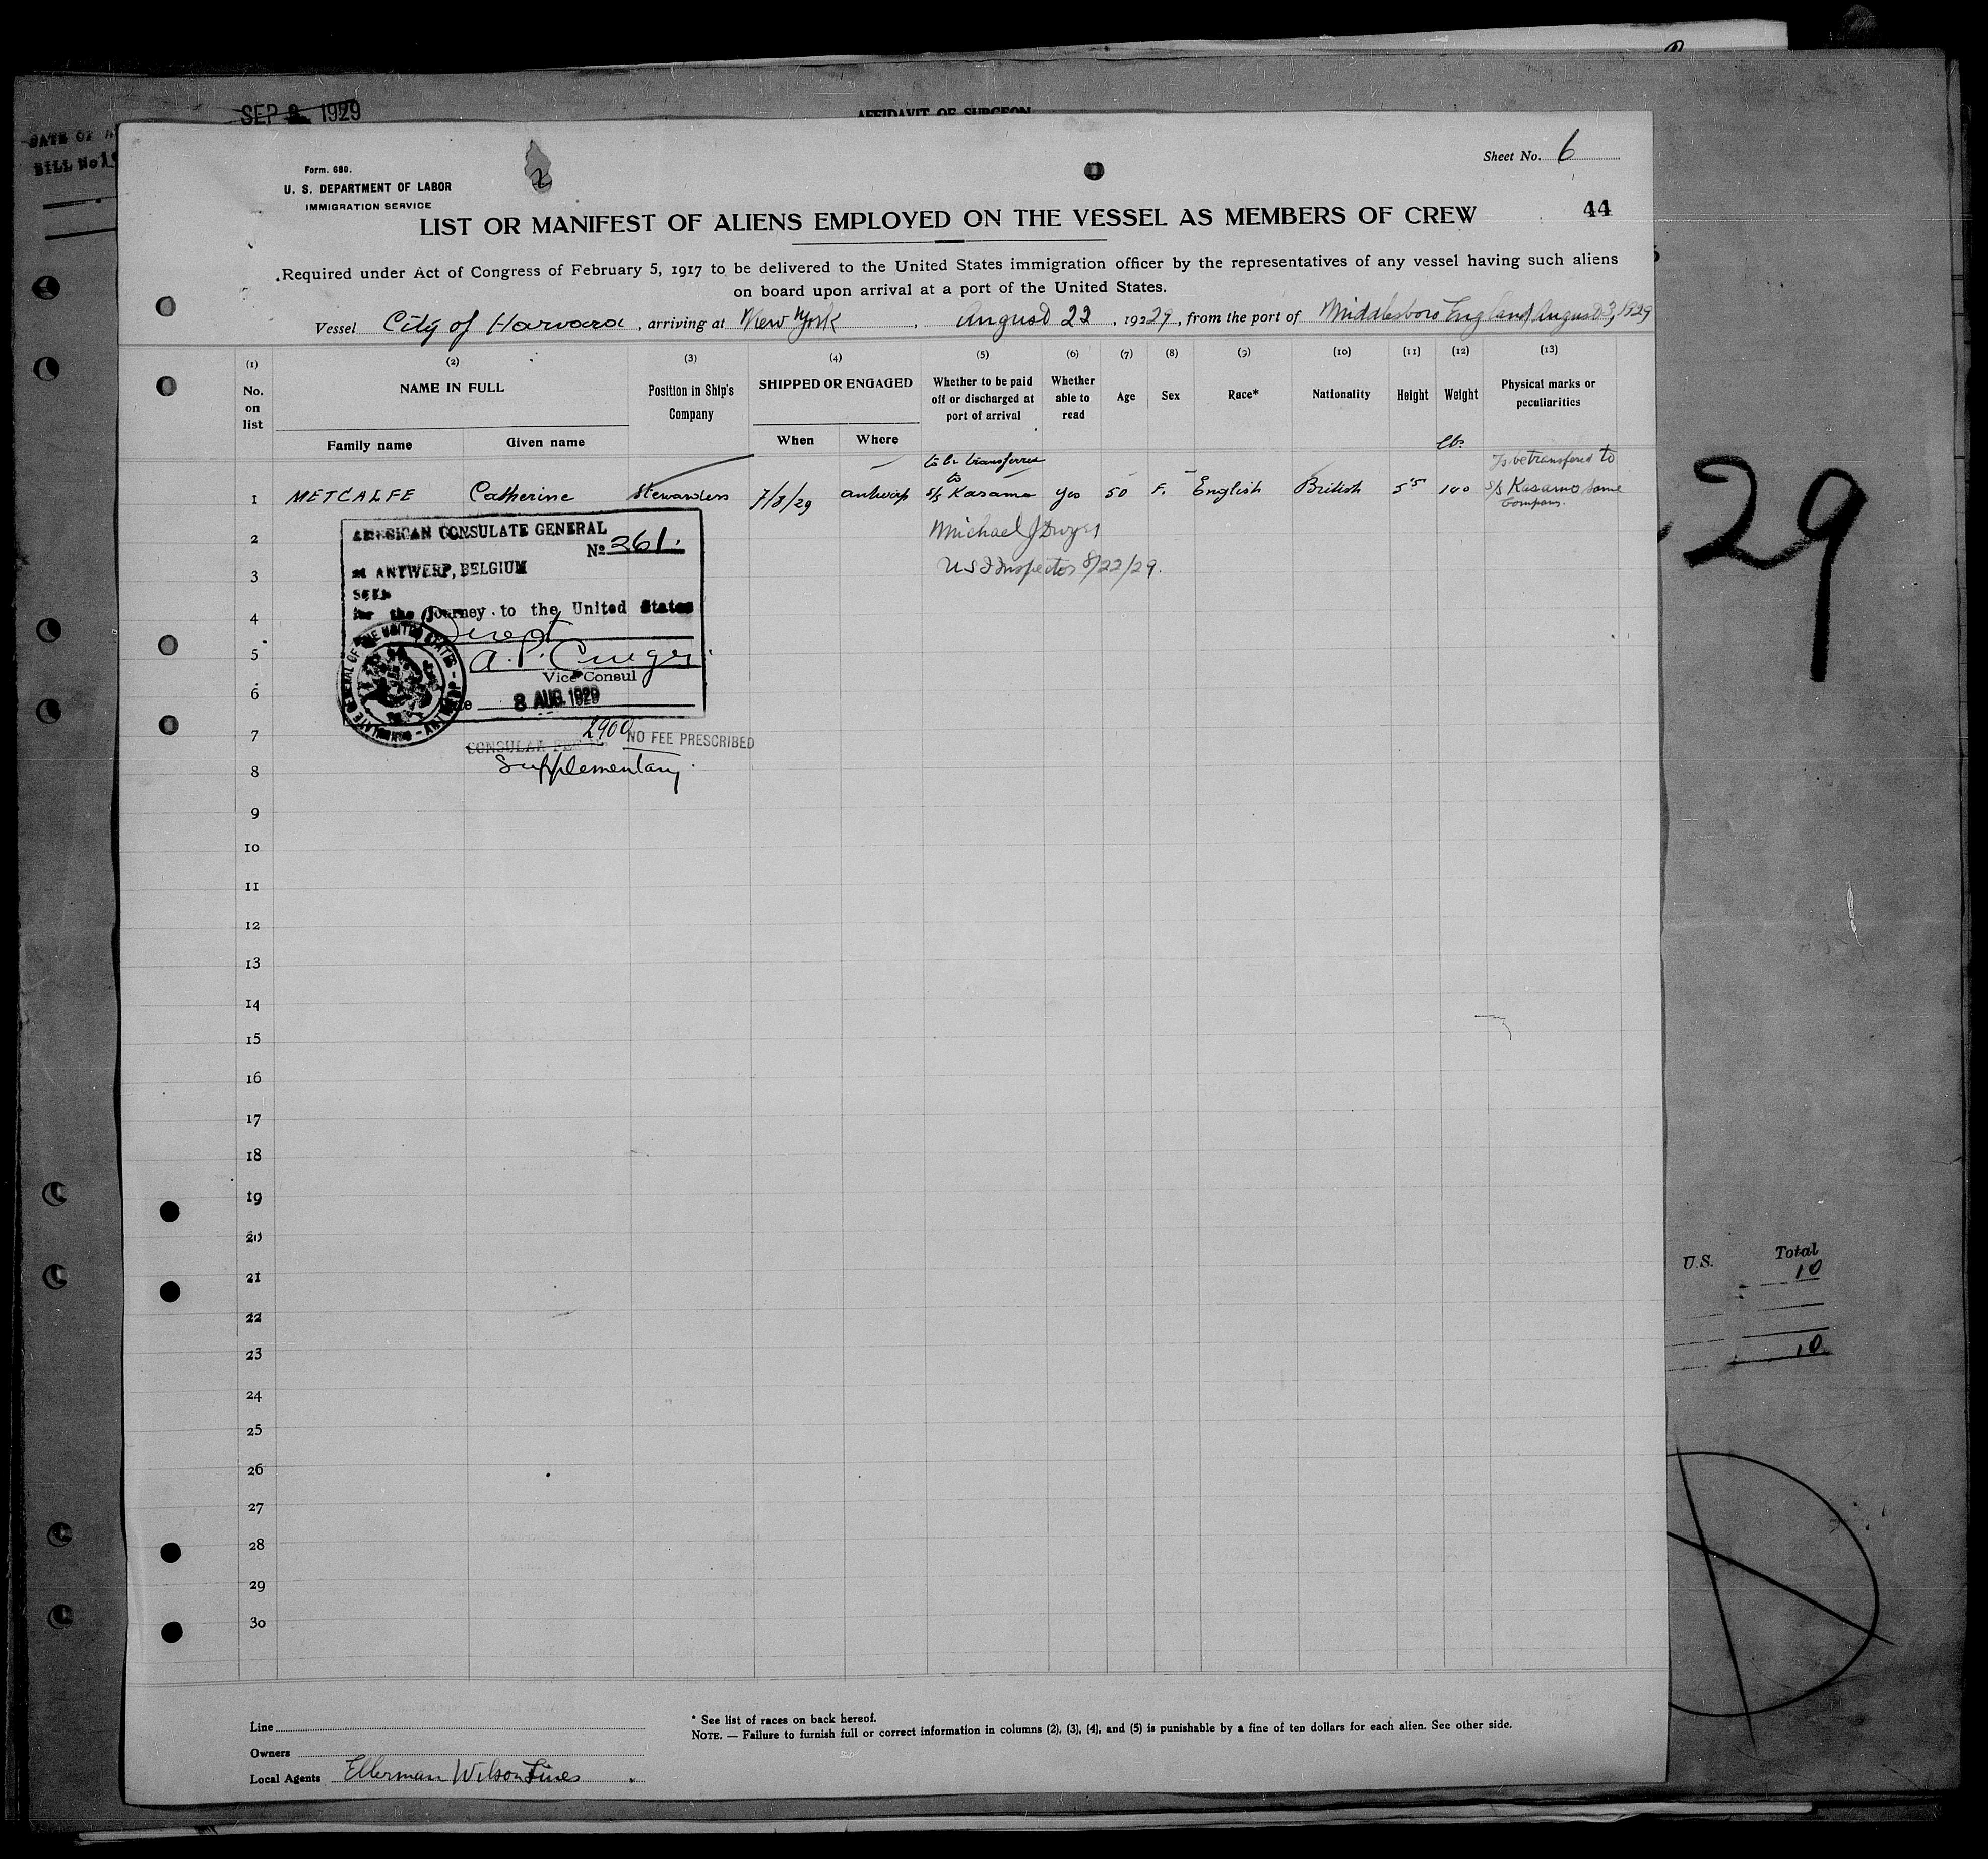 SEP 1929
AFFIDAVIT OF SURGEON
DATE OF
BILL No
Form. 680.
U. S. DEPARTMENT OF LABOR
IMMIGRATION SERVICE
Sheet No. 6
44
LIST OR MANIFEST OF ALIENS EMPLOYED ON THE VESSEL AS MEMBERS OF CREW
Required under Act of Congress of February 5, 1917 to be delivered to the United States immigration officer by the representatives of any vessel having such aliens
on board upon arrival at a port of the United States.
Vessel City of Harvard, arriving at New York, August 22, 19229, from the port of Middlesboro England August 3, 1929
(1) (2) (3) (4) (5) (6) (7) (8) (9) (10) (11) (12) (13)
No. on list NAME IN FULL Position in Ship's Company SHIPPED OR ENGAGED Whether to be paid off or discharged at port of arrival Whether able to read Age Sex Race* Nationality Height Weight Physical marks or peculiarities
Family name Given name When Where
lbs.
to be transferred to To be transfered to
1 METCALFE Catherine Stewardess 7/8/29 Antwerp S/S Kasama Yes 50 F. English British 5'5" 140 S/S Kasama Same
Company.
2 Michael J Dwyer
3 US I Inspector 8/22/29.
AMERICAN CONSULATE GENERAL
No 261.
at ANTWERP, BELGIUM
SEEN
for the journey to the United States
Direct
A. P. Cruger
Vice Consul
Date 8 AUG. 1929
CONSULATE GENERAL OF THE UNITED STATES - ANTWERP
2900
CONSULAR FEE No. NO FEE PRESCRIBED
Supplementary.
4
5
6
7
8
9
10
11
12
13
14
15
16
17
18
19
20
21
22
23
24
25
26
27
28
29
30
29
U.S. Total
10
10
Line
Owners
Local Agents Ellerman Wilson Lines
* See list of races on back hereof.
NOTE. — Failure to furnish full or correct information in columns (2), (3), (4), and (5) is punishable by a fine of ten dollars for each alien. See other side.